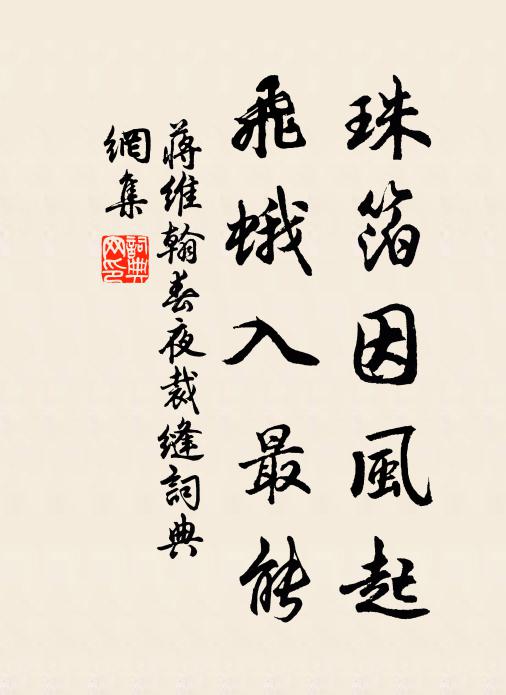 珠箔因風起
飛蛾入最能
蔣維翰春夜裁縫詞典
網集
詞典
网印